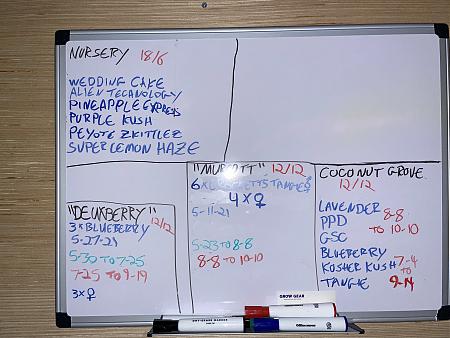 NURSERY 18/6
WEDDING CAKE
ALIEN TECHNOLOGY
PINEAPPLE EXPRESS
PURPLE KUSH
PEYOTE ZKITTLEZ
SUPER LEMON HAZE
"DEUKBERRY" 12/12
3 x BLUEBERRY
5-27-21
5-30 TO 7-25
7-25 TO 9-19
3x♀
"MURCOTT" 12/12
6 x TANGIES
4 x ♀
5-11-21
5-23 TO 8-8
8-8 TO 10-10
COCONUT GROVE
12/12
LAVENDER
PPD
GSC
8-8
TO 10-10
BLUEBERRY
KOSHER KUSH
TANGIE
7-4
TO
9-14
GROW GEAR